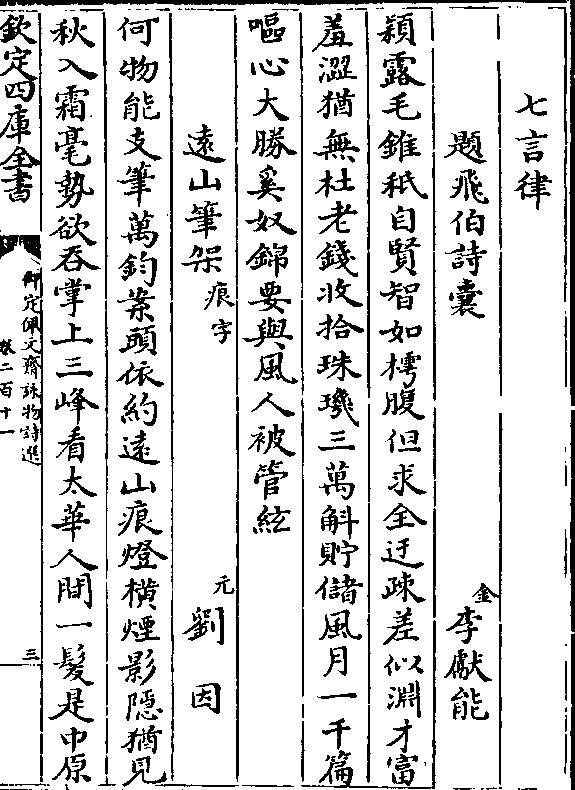 七言律
題飛伯詩囊 金 李獻能
穎露毛錐秪自賢智如樗腹但求全迂疎差似淵才富
羞澀猶無杜老錢收拾珠璣三萬斛貯儲風月一千篇
嘔心大勝奚奴錦要與風人被管絃
遠山筆架 痕字 元 劉因
何物能支筆萬鈞案頭依約遠山痕燈横煙影隱猶見
秋入霜毫勢欲吞掌上三峰看太華人間一髮是中原
欽定四庫全書 御定佩文齋詠物詩選 卷二百十一 三